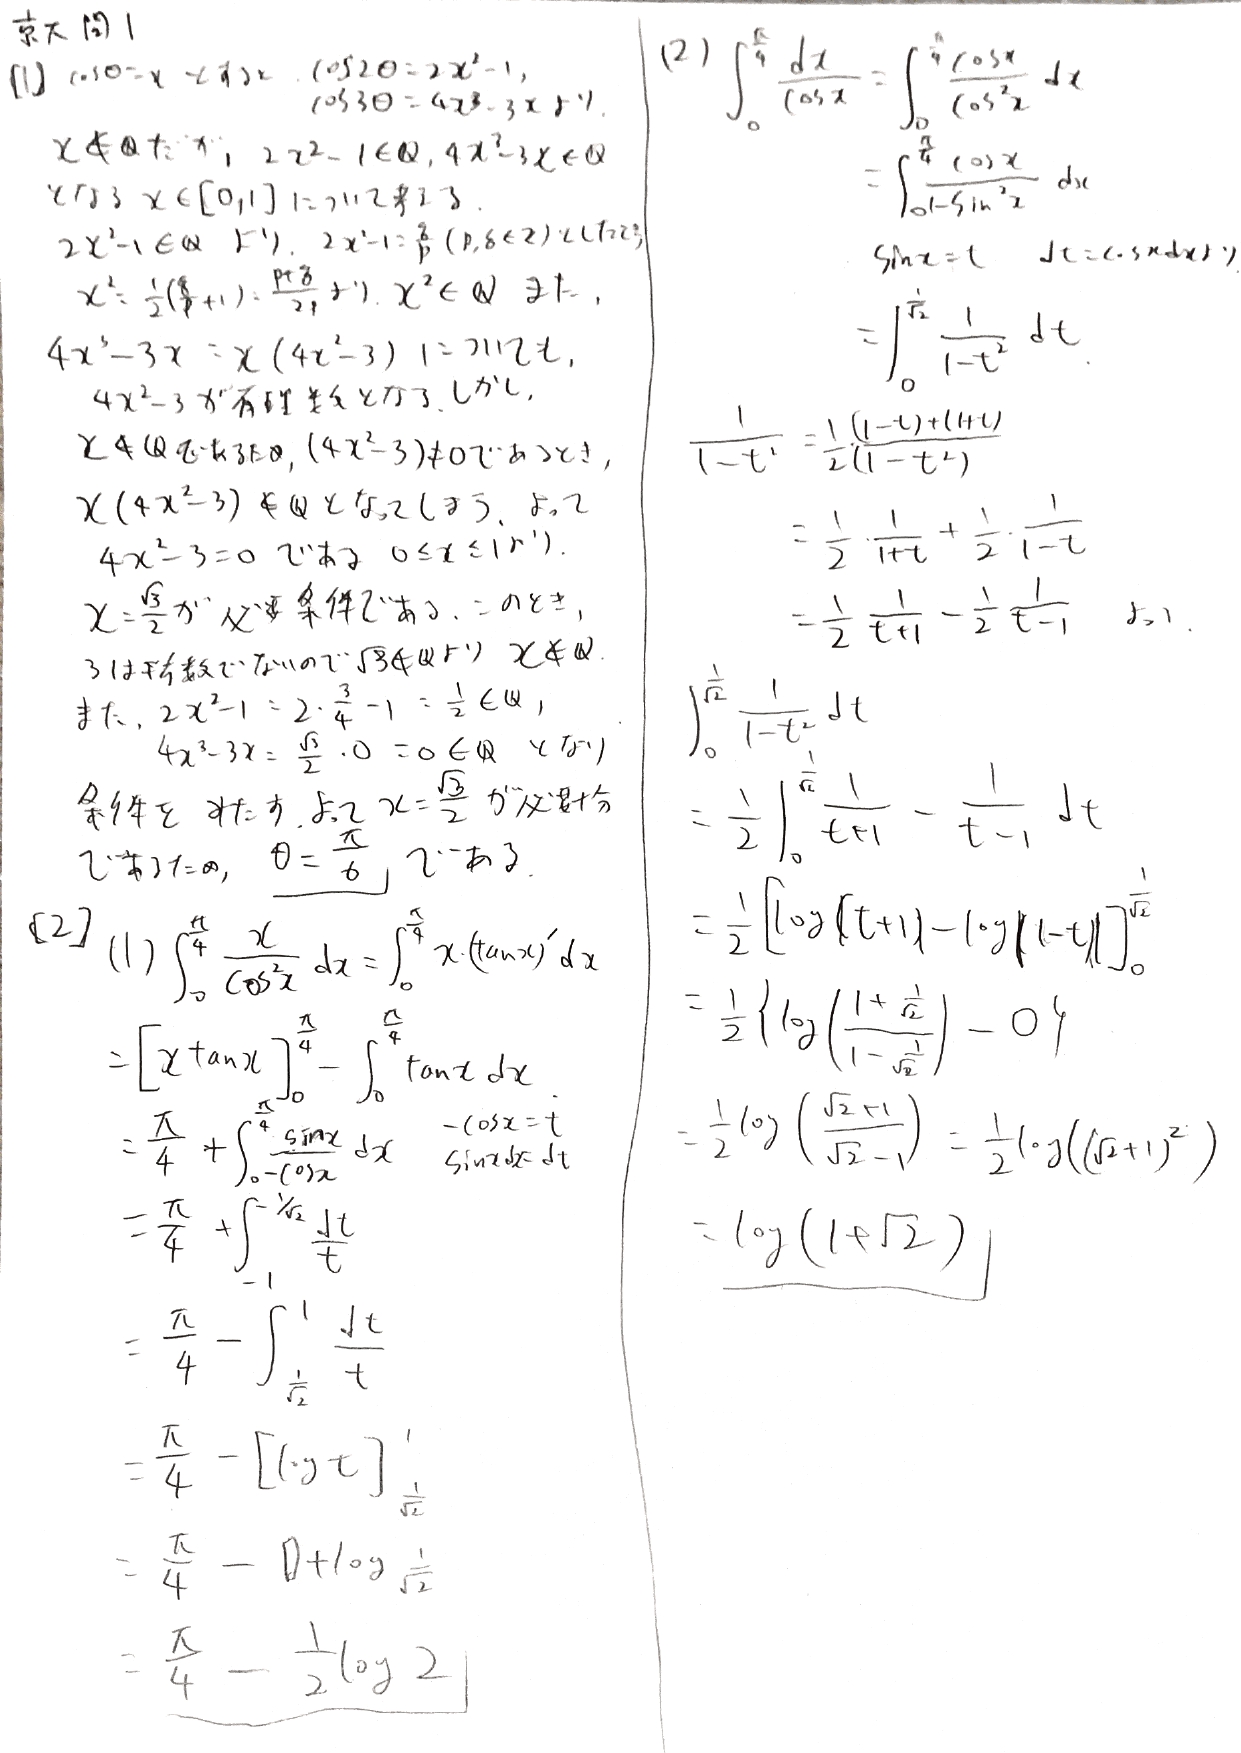 京大 問1
[1] cosθ=x とすると cos2θ=2x²-1,
cos3θ=4x³-3x より,
x∉Qだが, 2x²-1∈Q, 4x³-3x∈Q
となる x∈[0,1] について考える.
2x²-1∈Q より, 2x²-1=q/p (p,q∈Z)としたとき
x²=1/2(q/p+1)=p+q/2p より x²∈Q また,
4x³-3x=x(4x²-3) についても,
4x²-3が有理数となる.しかし,
x∉Qであるため, (4x²-3)≠0であるとき,
x(4x²-3)∉Qとなってしまう. よって
4x²-3=0 である 0≤x≤1より.
x=√3/2が必要条件である.このとき,
3は平方数でないので√3∉Qより x∉Q.
また, 2x²-1=2·3/4-1=1/2∈Q,
4x³-3x=√3/2·0=0∈Q となり
条件をみたす.よって x=√3/2 が必要十分
であるため, θ=π/6 である.
[2] (1) ∫₀^{π/4} x/cos²x dx = ∫₀^{π/4} x·(tanx)′dx
=[x tanx]₀^{π/4} - ∫₀^{π/4} tanx dx
=π/4+∫₀^{π/4} sinx/-cosx dx -cosx=t
sinxdx=dt
=π/4+∫_{-1}^{-1/√2} dt/t
=π/4-∫_{1/√2}^{1} dt/t
=π/4-[log t]_{1/√2}^{1}
=π/4-0+log 1/√2
=π/4-1/2 log2
(2) ∫₀^{π/4} dx/cosx = ∫₀^{π/4} cosx/cos²x dx
=∫₀^{π/4} cosx/1-sin²x dx
sinx=t dt=cosxdxより
=∫₀^{1/√2} 1/1-t² dt.
1/1-t²=1/2 (1-t)+(1+t)/(1-t²)
=1/2·1/1+t+1/2·1/1-t
=1/2 1/t+1-1/2 1/t-1 よって.
∫₀^{1/√2} 1/1-t² dt
=1/2∫₀^{1/√2} 1/t+1 - 1/t-1 dt
=1/2[log(t+1)-log(1-t)]₀^{1/√2}
=1/2{log(1+1/√2/1-1/√2)-0}
=1/2 log(√2+1/√2-1)=1/2 log((√2+1)²)
=log(1+√2)